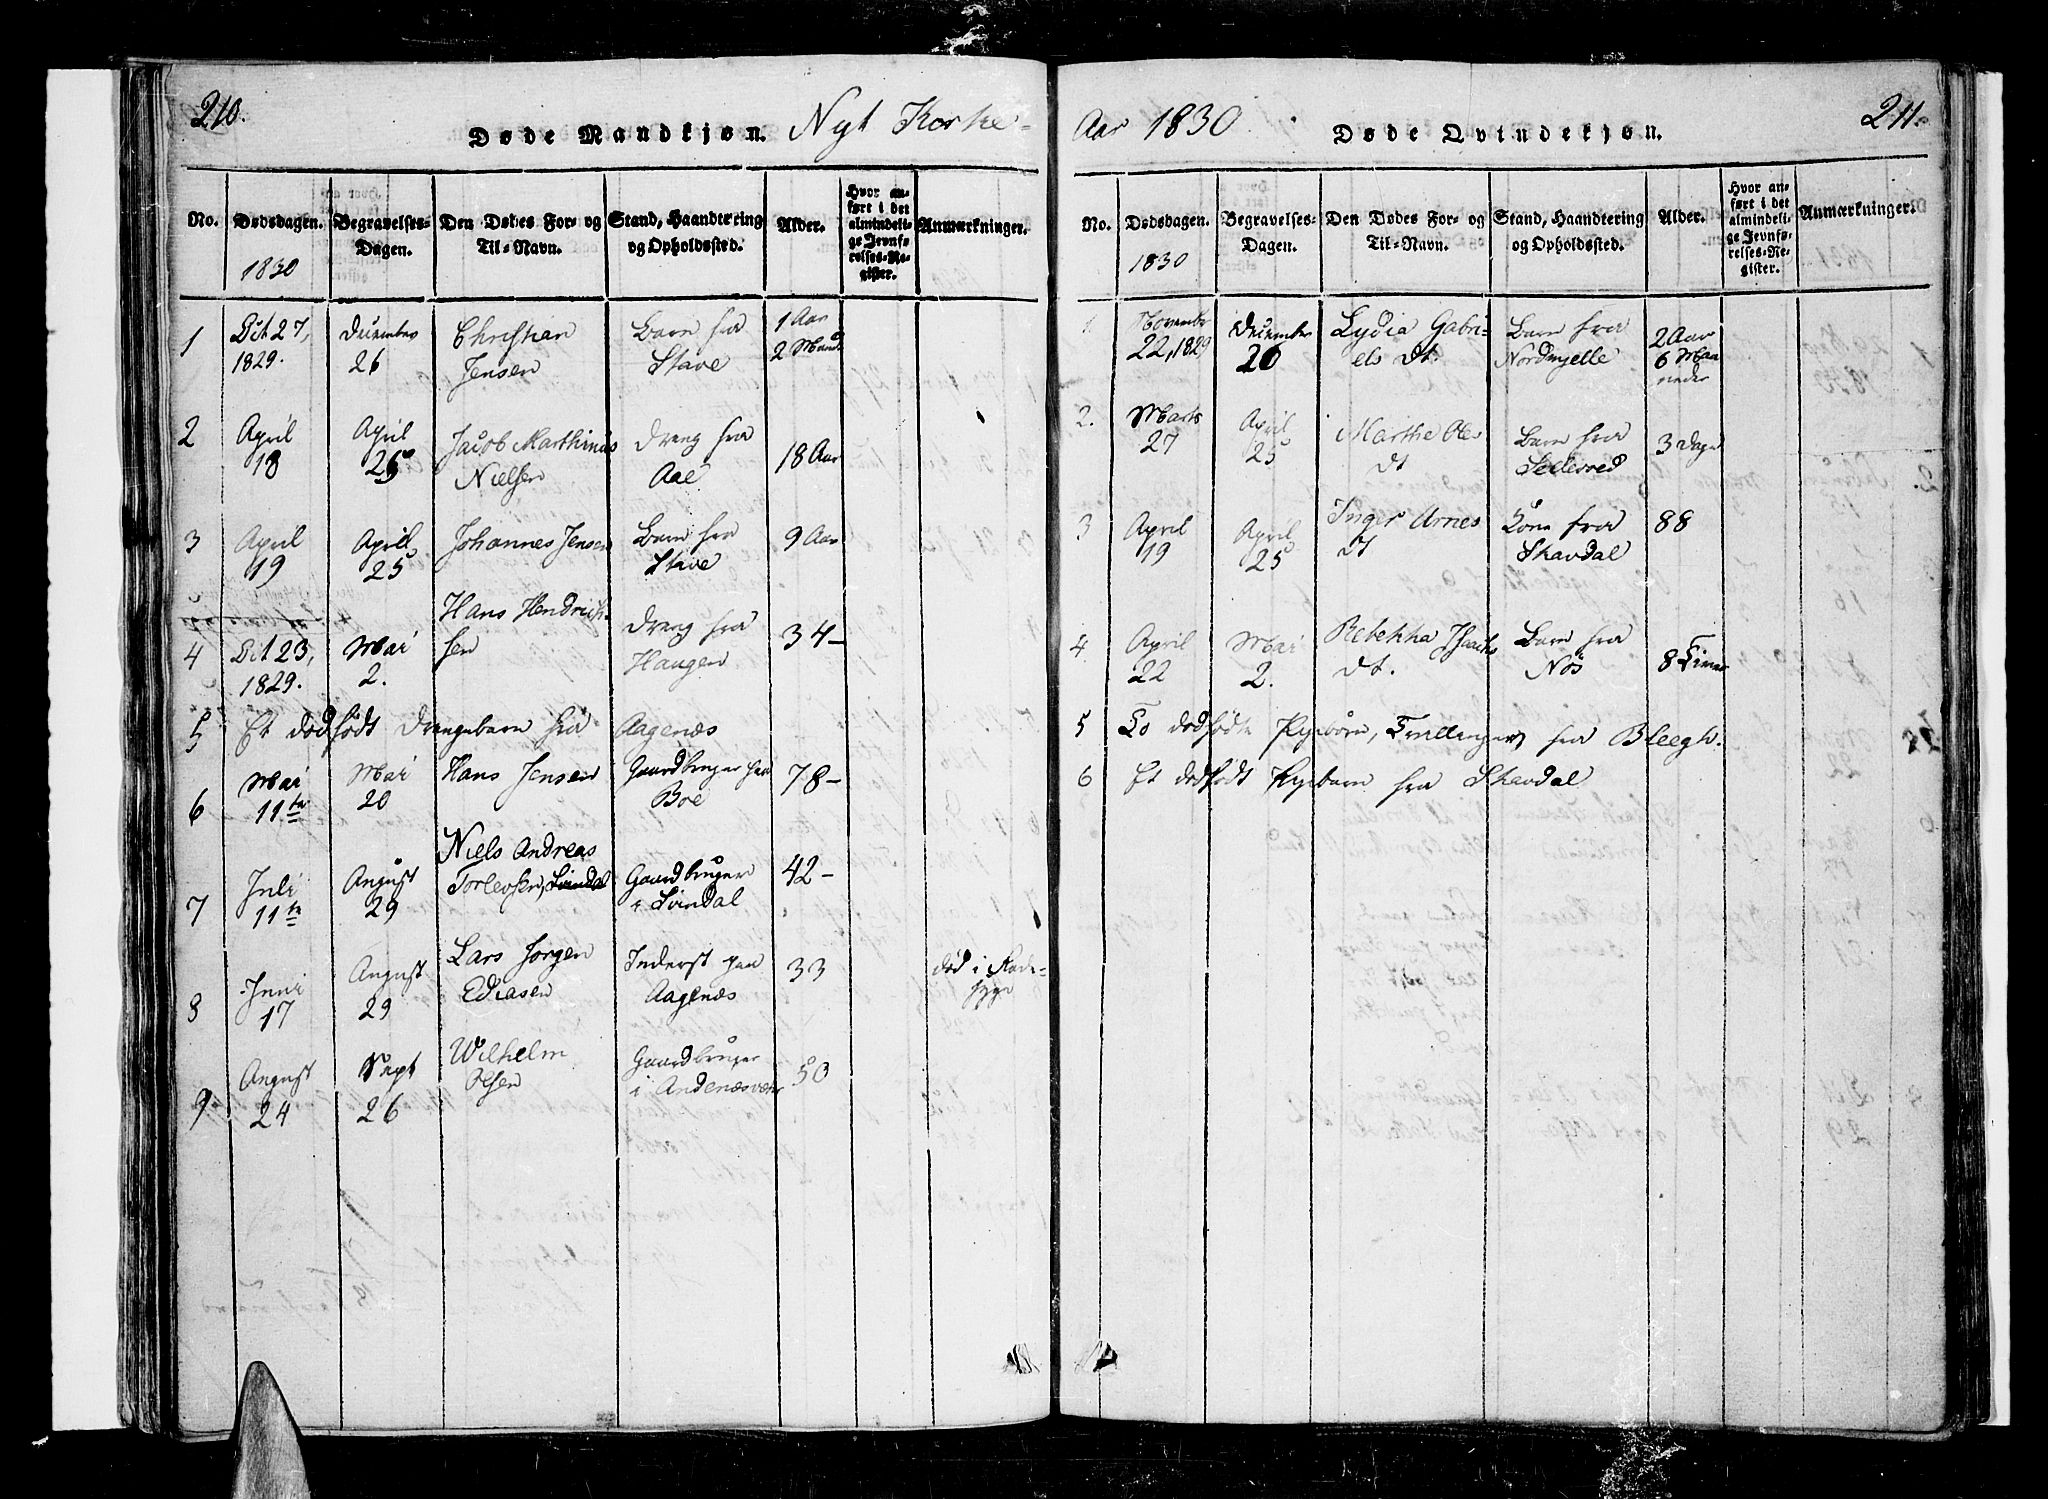 210.
Døde Mandkjøn. Nyt Kirke-
No. Dødsdagen. Begravelses-Dagen. Den Dødes For- og Til-Navn. Stand, Haandtering og Opholdssted. Alder. Hvor anført i det almindelige Jevnførelses-Register. Anmærkninger.
1830
1 Oct 27, December Christian Barn fra 1 Aar
1829. 26 Jensen Stave 2 Mand
2 April April Jacob Marthinus Dreng fra
18 25 Nielsen Aae 18 Aar
3 April April Johannes Jensen Barn fra 9 Aar
19 25 Stave
Hans Hendrich-
4 Oct 23, Mai sen Dreng fra 34-
1829. 2. Haugen
5 Et dødfødt Drengebarn fra Aagenæs
6 Mai Mai Hans Jensen Gaardbruger paa 78-
11te 20 Boe
Niels Andreas
7 Juli August Torlevsen, Gaardbruger 42-
11te 29 i Svindal
8 Juni August Lars Jørgen Inderst paa 33 død i Rade-
17 29 Ediasen Aagenæs syge
9 August Sept Wilhelm Gaardbruger 50
24 26 Olsen i Andenæsvær
Aar 1830. Døde Qvindekjøn.
211.
No. Dødsdagen. Begravelses-Dagen. Den Dødes For- og Til-Navn. Stand, Haandtering og Opholdssted. Alder. Hvor anført i det almindelige Jevnførelses-Register. Anmærkninger.
1830
1 November December Lydia Gabri- Barn fra 2 Aar
22, 1829 26 els Dt. Nordmjelle 6 Maa
neder
2. Marts April Marthe Ols Barn fra 3 Dage
27 25 Dt
3 April April Inger Arnes Kone fra 88
19 25 Dt Skavdal
4 April Mai Rebekka Isaachs Barn fra 8 Timer
22 2. Dt. Nøs
5 To dødfødte Pigebørn, Tvillinger, fra Bleegh.
6 Et dødfødt Pigebarn fra Skavdal